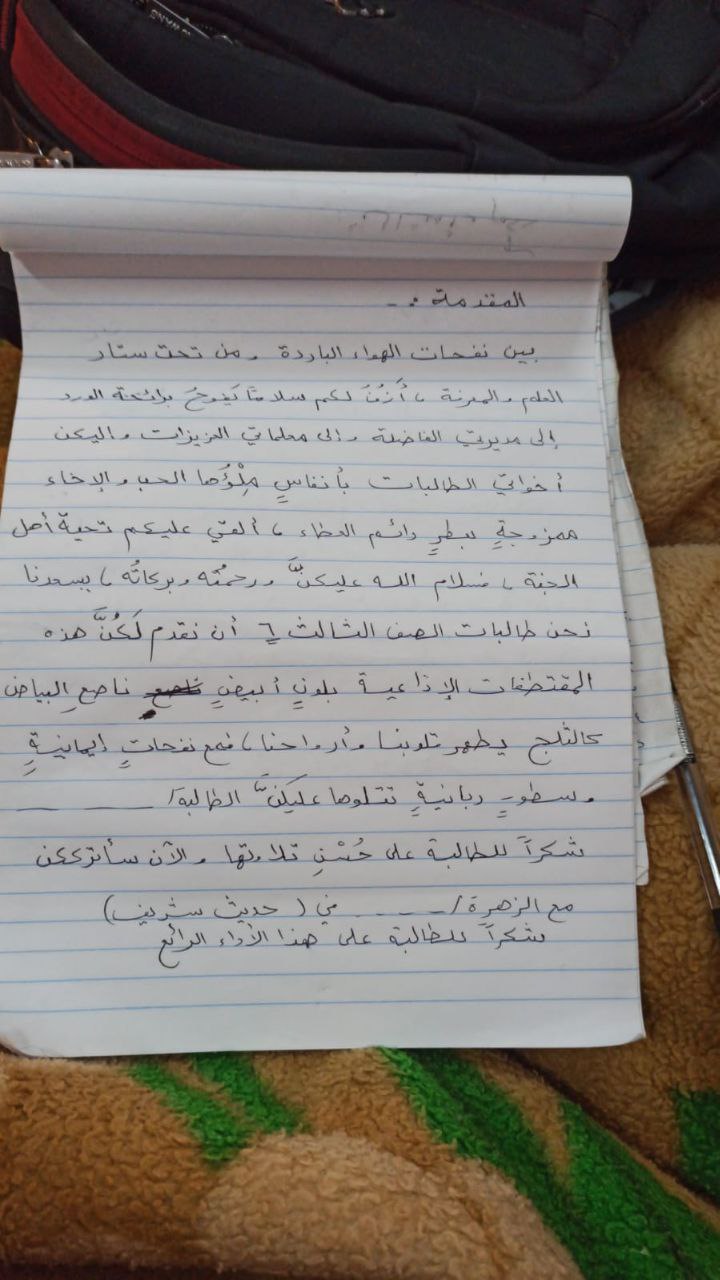 المقدمة :-
بين نفحات الهواء الباردة ومن تحت ستار
العلم والمعرفة ، أَزُفُّ لكم سلامًا يَفوحُ برائحة الورد
إلى مديرتي الفاضلة وإلى معلماتي العزيزات واليكن
أخواتي الطالبات بأنفاسٍ مِلْؤُها الحب والإخاء
ممزوجةٍ بعطرٍ دائم العطاء ، ألقي عليكم تحية أهل
الجنة ، فسلام الله عليكنَّ ورحمتُه وبركاتُه ، يسعدنا
نحن طالبات الصف الثالث أن نقدم لَكُنَّ هذه
المقتطفات الإذاعية بلونٍ أبيضٍ ناصعِ البياض
كالثلج يطهر قلوبنا وأرواحنا ، فمع نفحاتٍ إيمانيةٍ
وسطورٍ ربانيةٍ تتلوها عليكنَّ الطالبة / ــــ ــــ
شكراً للطالبة على حُسْنِ تلاوتها والآن سأترككن
مع الزهرة / ـ ـ ـ ـ في ( حديث شريف )
شكراً للطالبة على هذا الأداء الرائع